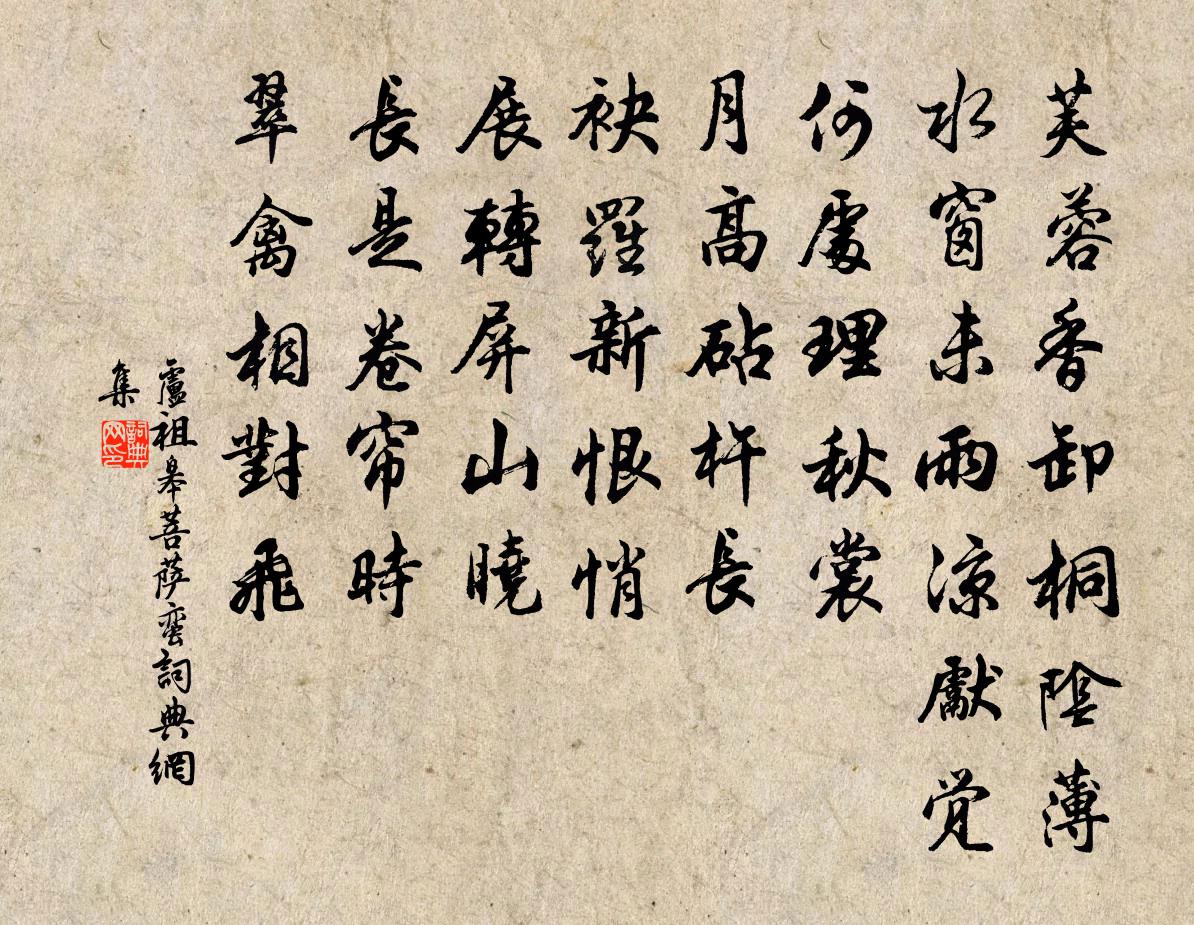 芙蓉香卸桐陰薄
水窗未雨涼獻觉
何處理秋裳
月高砧杵長
袂羅新恨悄
展轉屏山曉
長是卷帘時
翠禽相對飛
盧祖皋菩萨蛮詞典網
集
詞典
网印